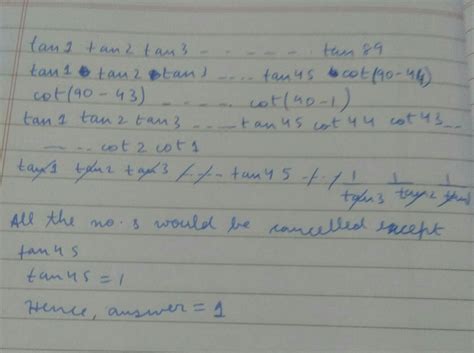 tan1 tan2 tan3 - - - - - - tan 89
tan1 tan2 tan3 .... tan45 cot(90-44)
cot(90-43) ------- cot(90-1)
tan1 tan2 tan3 ------ tan45 cot44 cot43 --
-- --- cot2 cot1
tan1 tan2 tan3 - - - tan45 - - - 1/tan3 1/tan2 1/tan1
All the no.s would be cancelled except
tan45
tan45 = 1
Hence, answer = 1